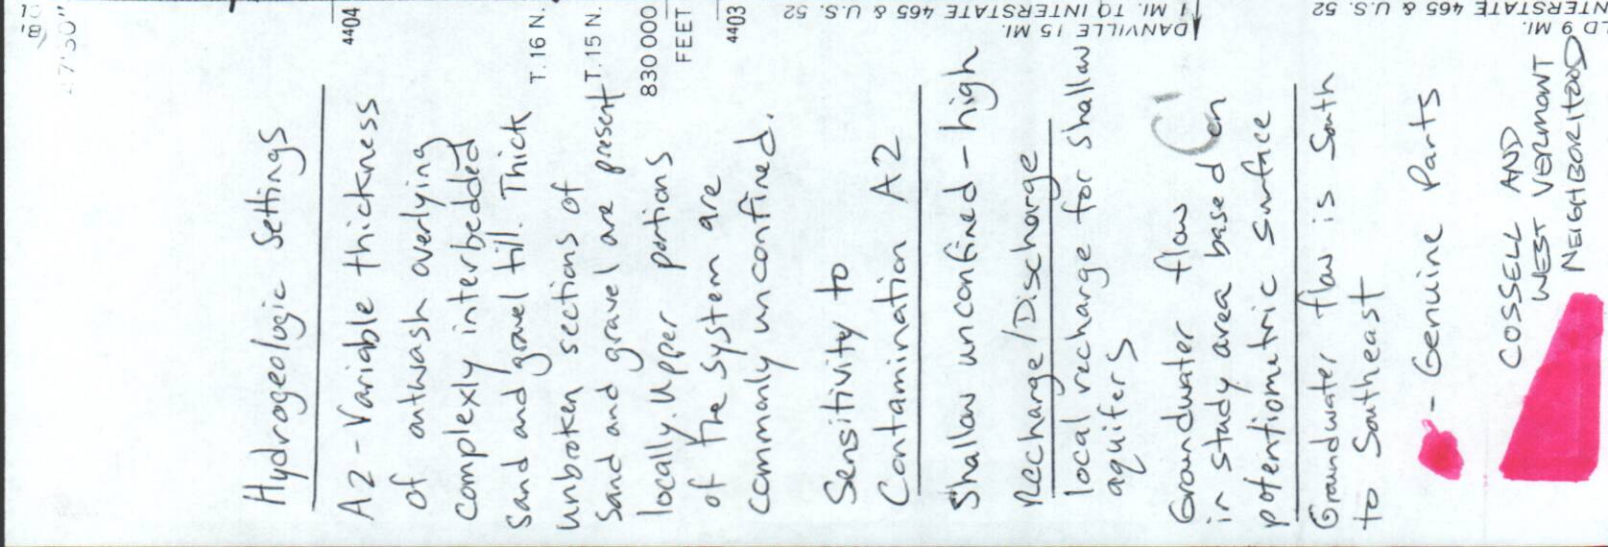 Hydrogeologic Settings
A2 - Variable thickness
of outwash overlying
complexly interbedded
sand and gravel till. Thick
unbroken sections of
sand and gravel are present
locally. Upper portions
of the system are
commonly unconfined.
Sensitivity to
Contamination A2
Shallow unconfined - high
Recharge/Discharge
local recharge for shallow
aquifers
Groundwater flow
in study area based on
potentiometric surface
Groundwater flow is South
to Southeast
- Genuine Parts
COSSELL AND
WEST VERMONT
NEIGHBORHOOD
4404
T. 16 N.
T. 15 N.
830 000
FEET
4403
DANVILLE 15 MI.
1 MI. TO INTERSTATE 465 & U.S. 52
LD 9 MI.
NTERSTATE 465 & U.S. 52
47'30"